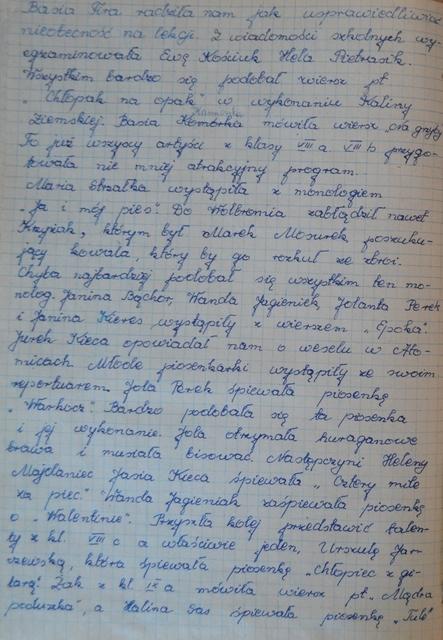 Basia Fira radziła nam jak usprawiedliwić
nieobecność na lekcji. Z wiadomości szkolnych wy-
egzaminowała Ewę Kosiuk Hela Pietrasik.
Wszystkim bardzo się podobał wiersz pt
„Chłopak na opak" w wykonaniu Haliny
Ziemskiej. Basia Komórka mówiła wiersz
To już wszyscy artyści z klasy VIII a VIII b przygo-
towała nie mniej atrakcyjny program.
Maria Strzałka wystąpiła z monologiem
„Ja i mój pies". Do Wolbromia zabłądził nawet
Krzyżak, którym był Marek Mosurek poszuku-
jący kowala, który by go rozkuł ze zbroi.
Chyba najbardziej podobał się wszystkim ten mo-
nolog. Janina Bąchor, Wanda Jagieniak, Jolanta Perek
i Janina Kieres wystąpiły z wierszem
Jurek Kieca opowiadał nam o weselu w
micach Młode piosenkarki wystąpiły ze swoim
repertuarem. Jola Perek śpiewała piosenkę
„Warkocz". Bardzo podobała się ta piosenka
i jej wykonanie. Jola otrzymała huraganowe
brawa i musiała bisować. Następczyni Heleny
Majdaniec Jasia Kieca śpiewała „Cztery mile
za piec." Wanda Jagieniak zaśpiewała piosenkę
o „Walentinie". Przyszła kolej przedstawić talen-
ty z kl. VIII c a właściwie jeden, Urszulę Jar-
czewską, która śpiewała piosenkę „Chłopiec z gi-
tarą". Żak z kl IX a mówiła wiersz pt. „Mądra
poduszka", a Halina Sas śpiewała piosenkę